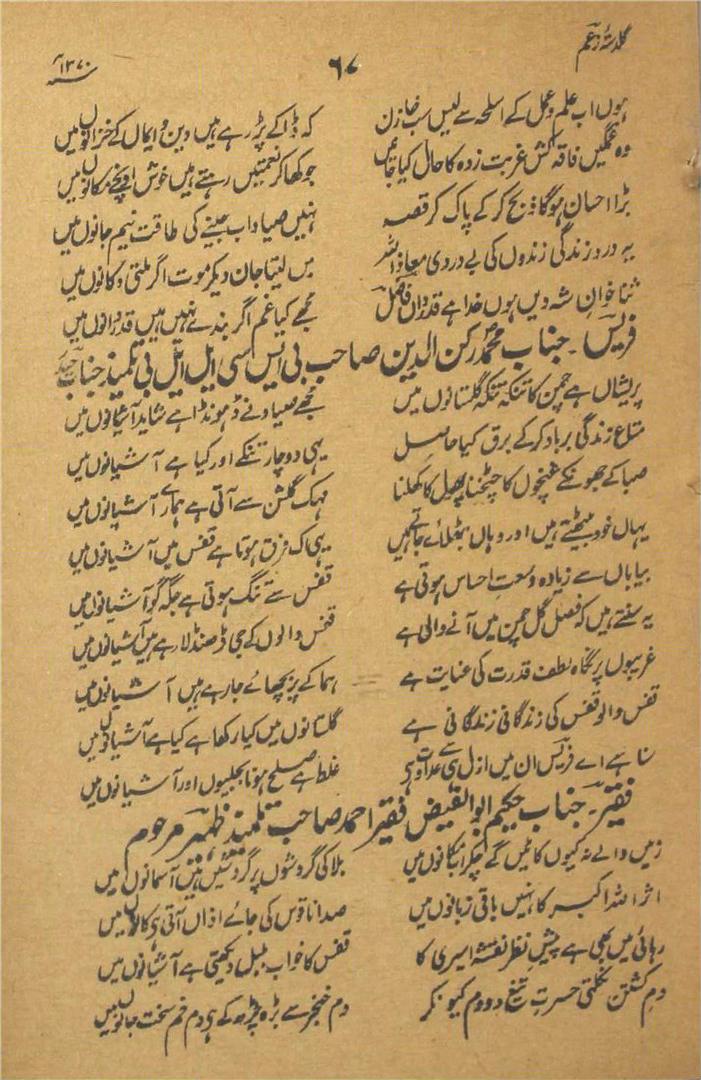 گلدستۂ زعم ۶۷ ۱۳۷۰
ہوں اب علم و عمل کے اسلحہ سے لیس سب خازن کہ ڈاکے پڑ رہے ہیں دین و ایماں کے خزانوں میں
وہ غمگیں فاقہ کش غربت زدہ کا حال کیا جانیں جو کھا کر نعمتیں رہتے ہیں خوش اونچے مکانوں میں
بڑا احسان ہوگا ذبح کر کے پاک کر قصہ نہیں صیاد اب جینے کی طاقت نیم جانوں میں
یہ درد زندگی زندوں کی بے دردی معاذ اللہ میں لیتا جان دیکر موت اگر ملتی دکانوں میں
ثنا خوان شہ دیں ہوں خدا ہے قدرداں فاضل مجھے کیا غم اگر بندے نہیں ہیں قدردانوں میں
فریس۔ جناب محمد رکن الدین صاحب بی ایس سی ایل ایل بی تلمیذ جناب
پریشاں ہے چمن کا تنکہ تنکہ گلستانوں میں مجھے صیاد نے ڈھونڈا ہے شاید آشیانوں میں
متاع زندگی برباد کر کے برق کیا حاصل یہی دو چار تنکے اور کیا ہے آشیانوں میں
صبا کے جھونکے غنچوں کا چٹخنا پھول کا کھلنا مہک گلشن سے آتی ہے ہمارے آشیانوں میں
یہاں خود بیٹھتے ہیں اور وہاں بٹھلائے جاتے ہیں یہی اک فرق ہوتا ہے قفس میں آشیانوں میں
بیاباں سے زیادہ وسعت احساس ہوتی ہے قفس سے تنگ ہوتی ہے جگہ گو آشیانوں میں
یہ سنتے ہیں کہ فصل گل چمن میں آنے والی ہے قفس والوں کے جی ڈھنڈلا رہے ہیں آشیانوں میں
غریبوں پر نگاہ لطف قدرت کی عنایت ہے ہما کے پر بچھائے جا رہے ہیں آشیانوں میں
قفس والو قفس کی زندگانی زندگانی ہے گلستانوں میں کیا رکھا ہے کیا ہے آشیانوں میں
سنا ہے اے فریس ان میں ازل ہی سے عداوت ہی غلط ہے صلح ہونا بجلیوں اور آشیانوں میں
فقیر۔ جناب حکیم ابو الفیض فقیر احمد صاحب تلمیذ ظہیر مرحوم
زمیں والے نہ کیوں کاٹیں گے چکر بلا کی گردشوں پر گردشیں ہیں آسمانوں میں
اثر اللہ اکبر کا نہیں باقی زبانوں میں صدا ناقوس کی جائے اذاں آتی ہی کانوں میں
رہائی میں بھی ہے پیش نظر نقشہ اسیری کا قفس کا خواب بلبل دیکھتی ہے آشیانوں میں
دم کشتن نکلتی حسرت تیغ دو دم کیونکر دم خنجر سے بڑھ چڑھ کے ہی دم خم سخت جانوں میں